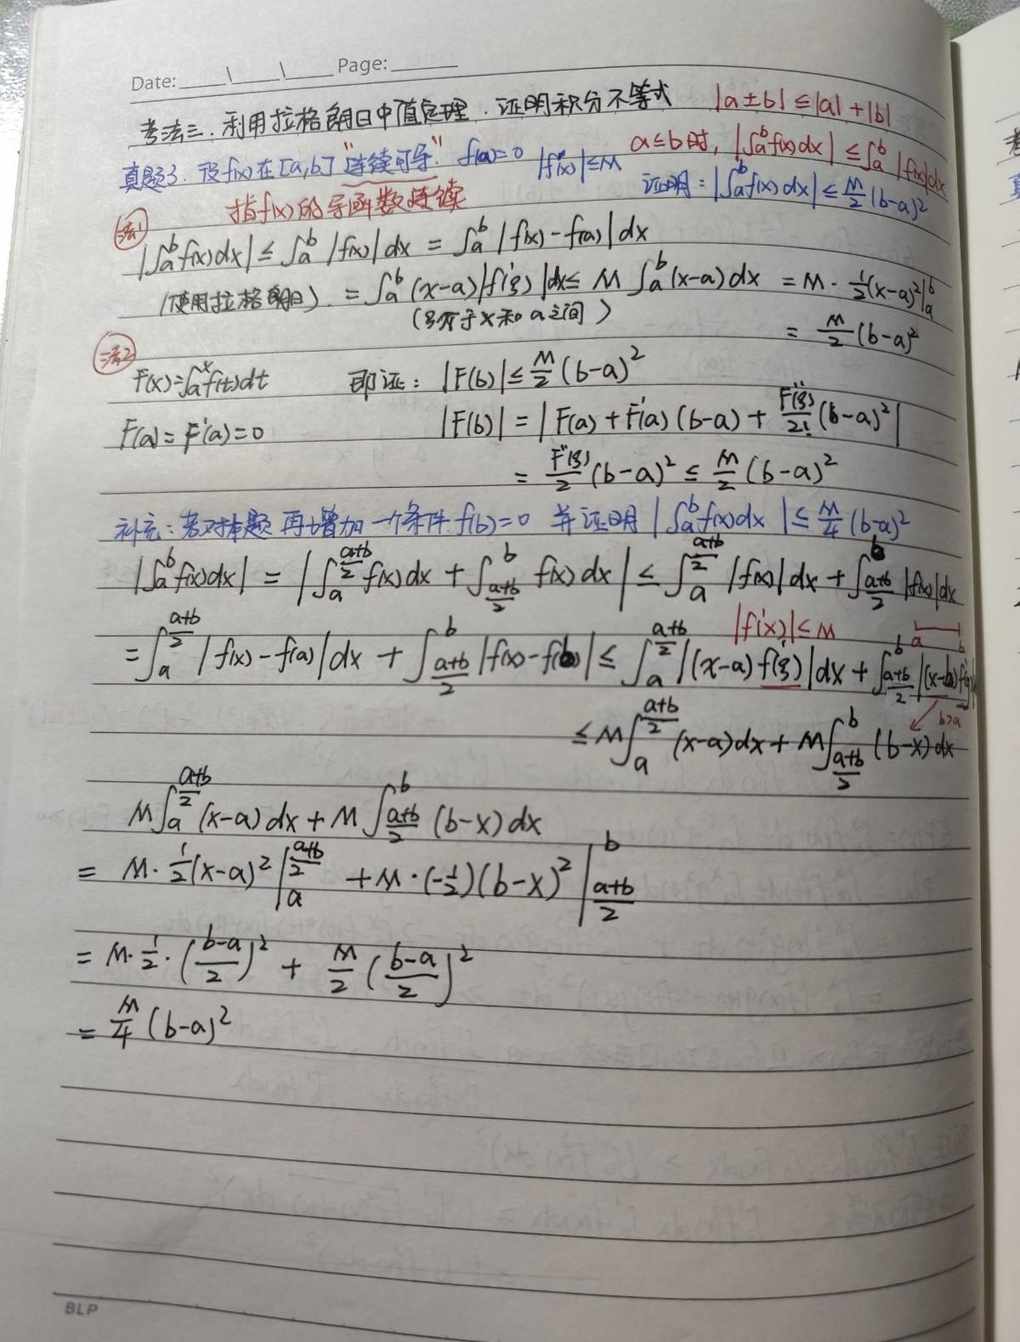 Date: ____\____\____ Page: ______
考法三. 利用拉格朗日中值定理. 证明积分不等式 |a±b|≤|a|+|b|
a≤b时, |∫_a^b f(x)dx| ≤ ∫_a^b |f(x)|dx
真题3. 设f(x)在[a,b]"连续可导" f(a)=0 |f'(x)|≤M 证明: |∫_a^b f(x)dx| ≤ M/2 (b-a)²
指f(x)的导函数连续
法1 |∫_a^b f(x)dx| ≤ ∫_a^b |f(x)|dx = ∫_a^b |f(x)-f(a)|dx
(使用拉格朗日) = ∫_a^b (x-a)|f'(ξ)|dx ≤ M∫_a^b (x-a)dx = M·½(x-a)²|_a^b
(ξ介于x和a之间) = M/2 (b-a)²
法2 F(x)=∫_a^x f(t)dt 即证: |F(b)| ≤ M/2 (b-a)²
F(a)=F'(a)=0 |F(b)| = |F(a)+F'(a)(b-a)+F''(ξ)/2! (b-a)²|
= F''(ξ)/2 (b-a)² ≤ M/2 (b-a)²
补充: 若对本题再增加一个条件f(b)=0 并证明|∫_a^b f(x)dx| ≤ M/4 (b-a)²
|∫_a^b f(x)dx| = |∫_a^{(a+b)/2} f(x)dx + ∫_{(a+b)/2}^b f(x)dx| ≤ ∫_a^{(a+b)/2} |f(x)|dx + ∫_{(a+b)/2}^b |f(x)|dx
|f'(x)|≤M a b
= ∫_a^{(a+b)/2} |f(x)-f(a)|dx + ∫_{(a+b)/2}^b |f(x)-f(b)| ≤ ∫_a^{(a+b)/2} |(x-a)f'(ξ)|dx + ∫_{(a+b)/2}^b |(x-b)
b>a
≤ M∫_a^{(a+b)/2} (x-a)dx + M∫_{(a+b)/2}^b (b-x)dx
M∫_a^{(a+b)/2} (x-a)dx + M∫_{(a+b)/2}^b (b-x)dx
= M·½(x-a)²|_a^{(a+b)/2} + M·(-½)(b-x)²|_{(a+b)/2}^b
= M·½·((b-a)/2)² + M/2 ((b-a)/2)²
= M/4 (b-a)²
BLP